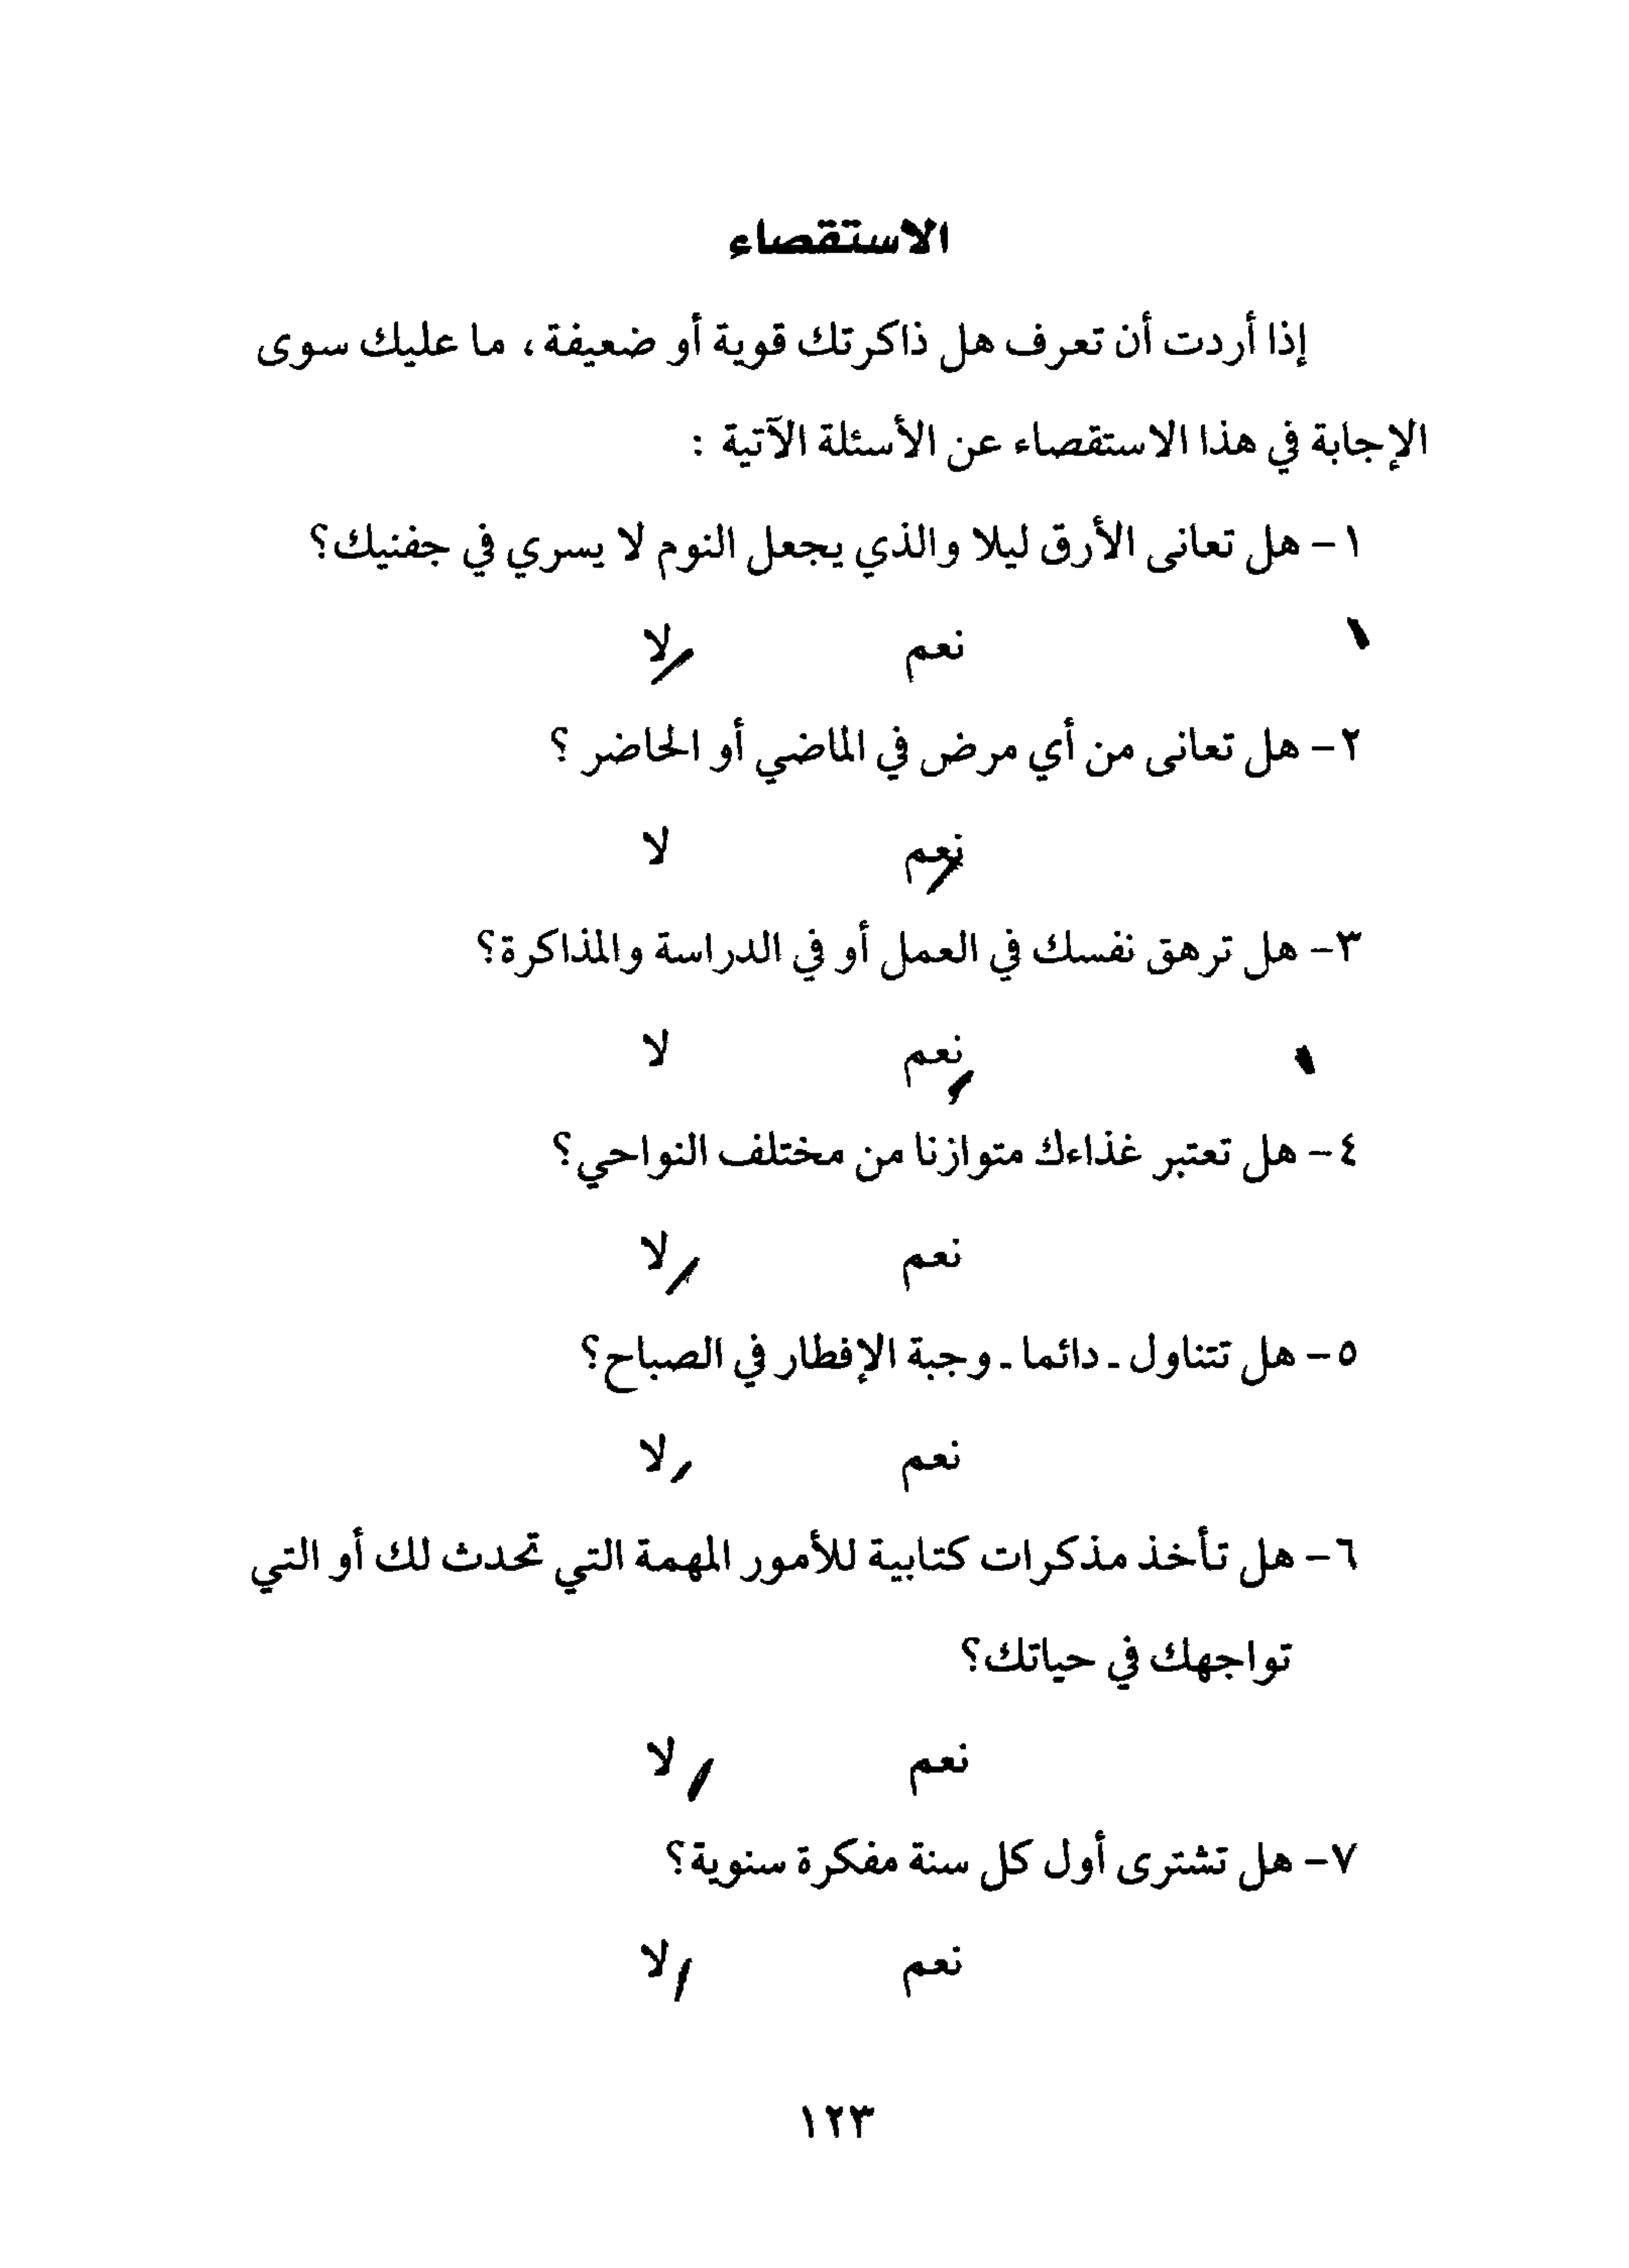 الاستقصاء
إذا أردت أن تعرف هل ذاكرتك قوية أو ضعيفة، ما عليك سوى
الإجابة في هذا الاستقصاء عن الأسئلة الآتية :
١- هل تعانى الأرق ليلا والذي يجعل النوم لا يسري في جفنيك؟
نعم لا
٢- هل تعانى من أي مرض في الماضي أو الحاضر ؟
نعم لا
٣- هل ترهق نفسك في العمل أو في الدراسة والمذاكرة؟
نعم لا
٤- هل تعتبر غذاءك متوازنا من مختلف النواحي؟
نعم لا
٥- هل تتناول ـ دائما ـ وجبة الإفطار في الصباح؟
نعم لا
٦- هل تأخذ مذكرات كتابية للأمور المهمة التي تحدث لك أو التي
تواجهك في حياتك؟
نعم لا
٧- هل تشترى أول كل سنة مفكرة سنوية؟
نعم لا
١٢٣